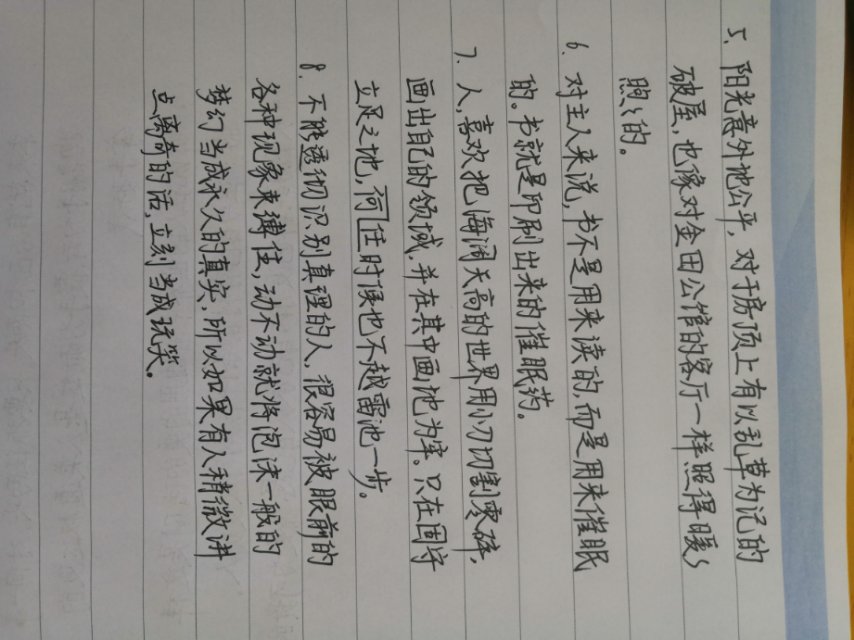 5. 阳光意外地公平，对于房顶上有以乱草为记的
破屋，也像对金田公馆的客厅一样照得暖〻
煦〻的。
6. 对主人来说，书不是用来读的，而是用来催眠
的。书就是印刷出来的催眠药。
7. 人，喜欢把海阔天高的世界用小刀切割零碎，
画出自己的领域，并在其中画地为牢。只在固守
立足之地，何任时候也不越雷池一步。
8. 不能透彻识别真理的人，很容易被眼前的
各种现象束缚住，动不动就将泡沫一般的
梦幻当成永久的真实，所以如果有人稍微讲
点离奇的话，立刻当成玩笑。